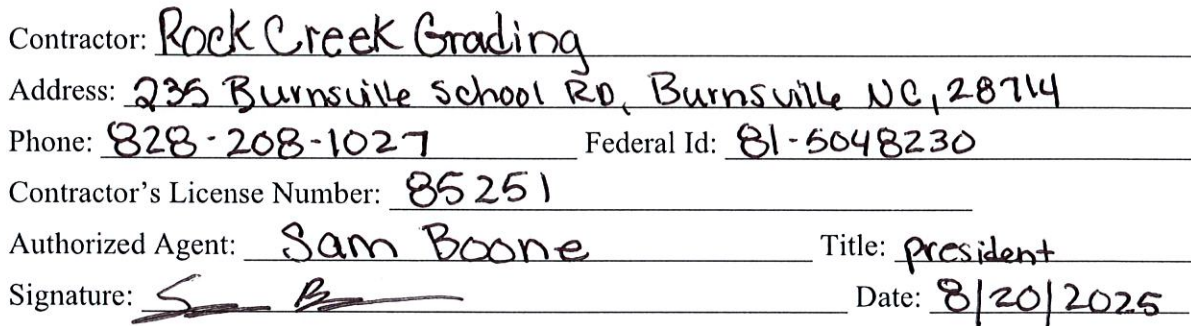 Contractor: Rock Creek Grading
Address: 235 Burnsville School RD, Burnsville NC, 28714
Phone: 828-208-1027 Federal Id: 81-5048230
Contractor's License Number: 85251
Authorized Agent: Sam Boone Title: president
Signature: S B
Date: 8/20/2025